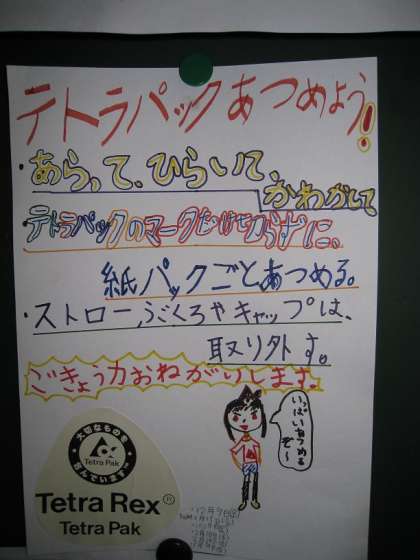 テトラパックあつめよう!
・あらって、ひらいて、
かわかして
テトラパックのマークだけをきりとらずに、
紙パックごとあつめる。
・ストロー、ふくろやキャップは、
取り外す。
ごきょう力おねがいします。
いっぱいあつめるぞ〜
大切なものを
包んでいます™
Tetra Pak
Tetra Rex®
Tetra Pak